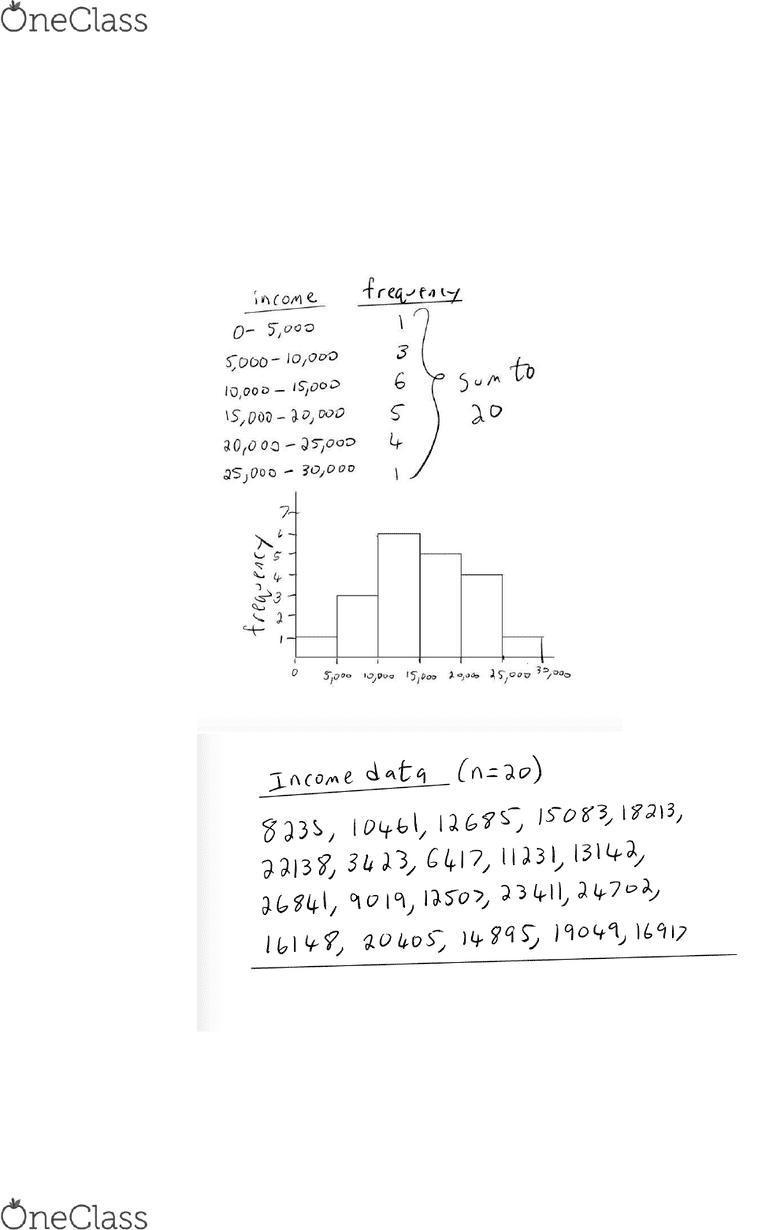 OneClass
income frequency
0- 5,000 1
5,000-10,000 3
10,000 - 15,000 6
15,000-20,000 5
20,000-25,000 4
25,000 - 30,000 1
sum to
20
frequency
7
6
5
4
3
2
1
0 5,000 10,000 15,000 20,000 25,000 30,000
Income data (n=20)
8235, 10461, 12685, 15083, 18213,
22138, 3423, 6417, 11231, 13142,
26841, 9019, 12507, 23411, 24702,
16148, 20405, 14895, 19049, 16917
OneClass